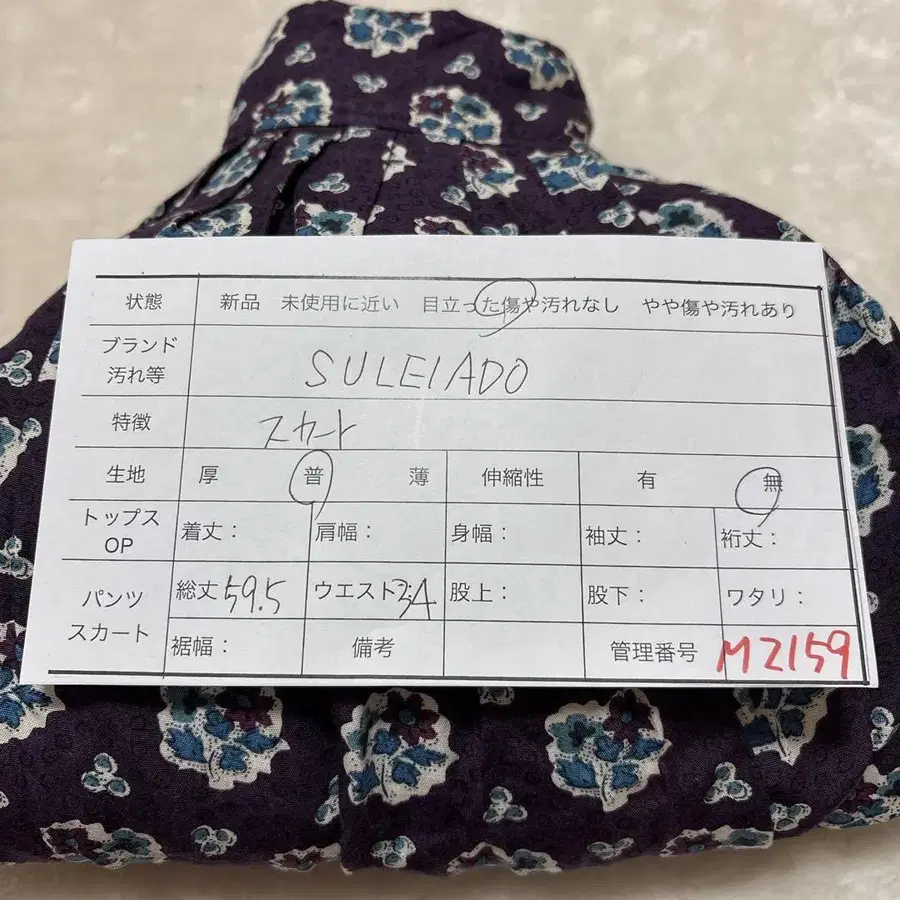 状態 新品 未使用に近い 目立った傷や汚れなし やや傷や汚れあり
ブランド
汚れ等 SULEIADO
特徴 スカート
生地 厚 普 薄 伸縮性 有 無
トップス
OP 着丈: 肩幅: 身幅: 袖丈: 裄丈:
パンツ
スカート 総丈 59.5 ウエスト 34 股上: 股下: ワタリ:
裾幅: 備考 管理番号 M2159